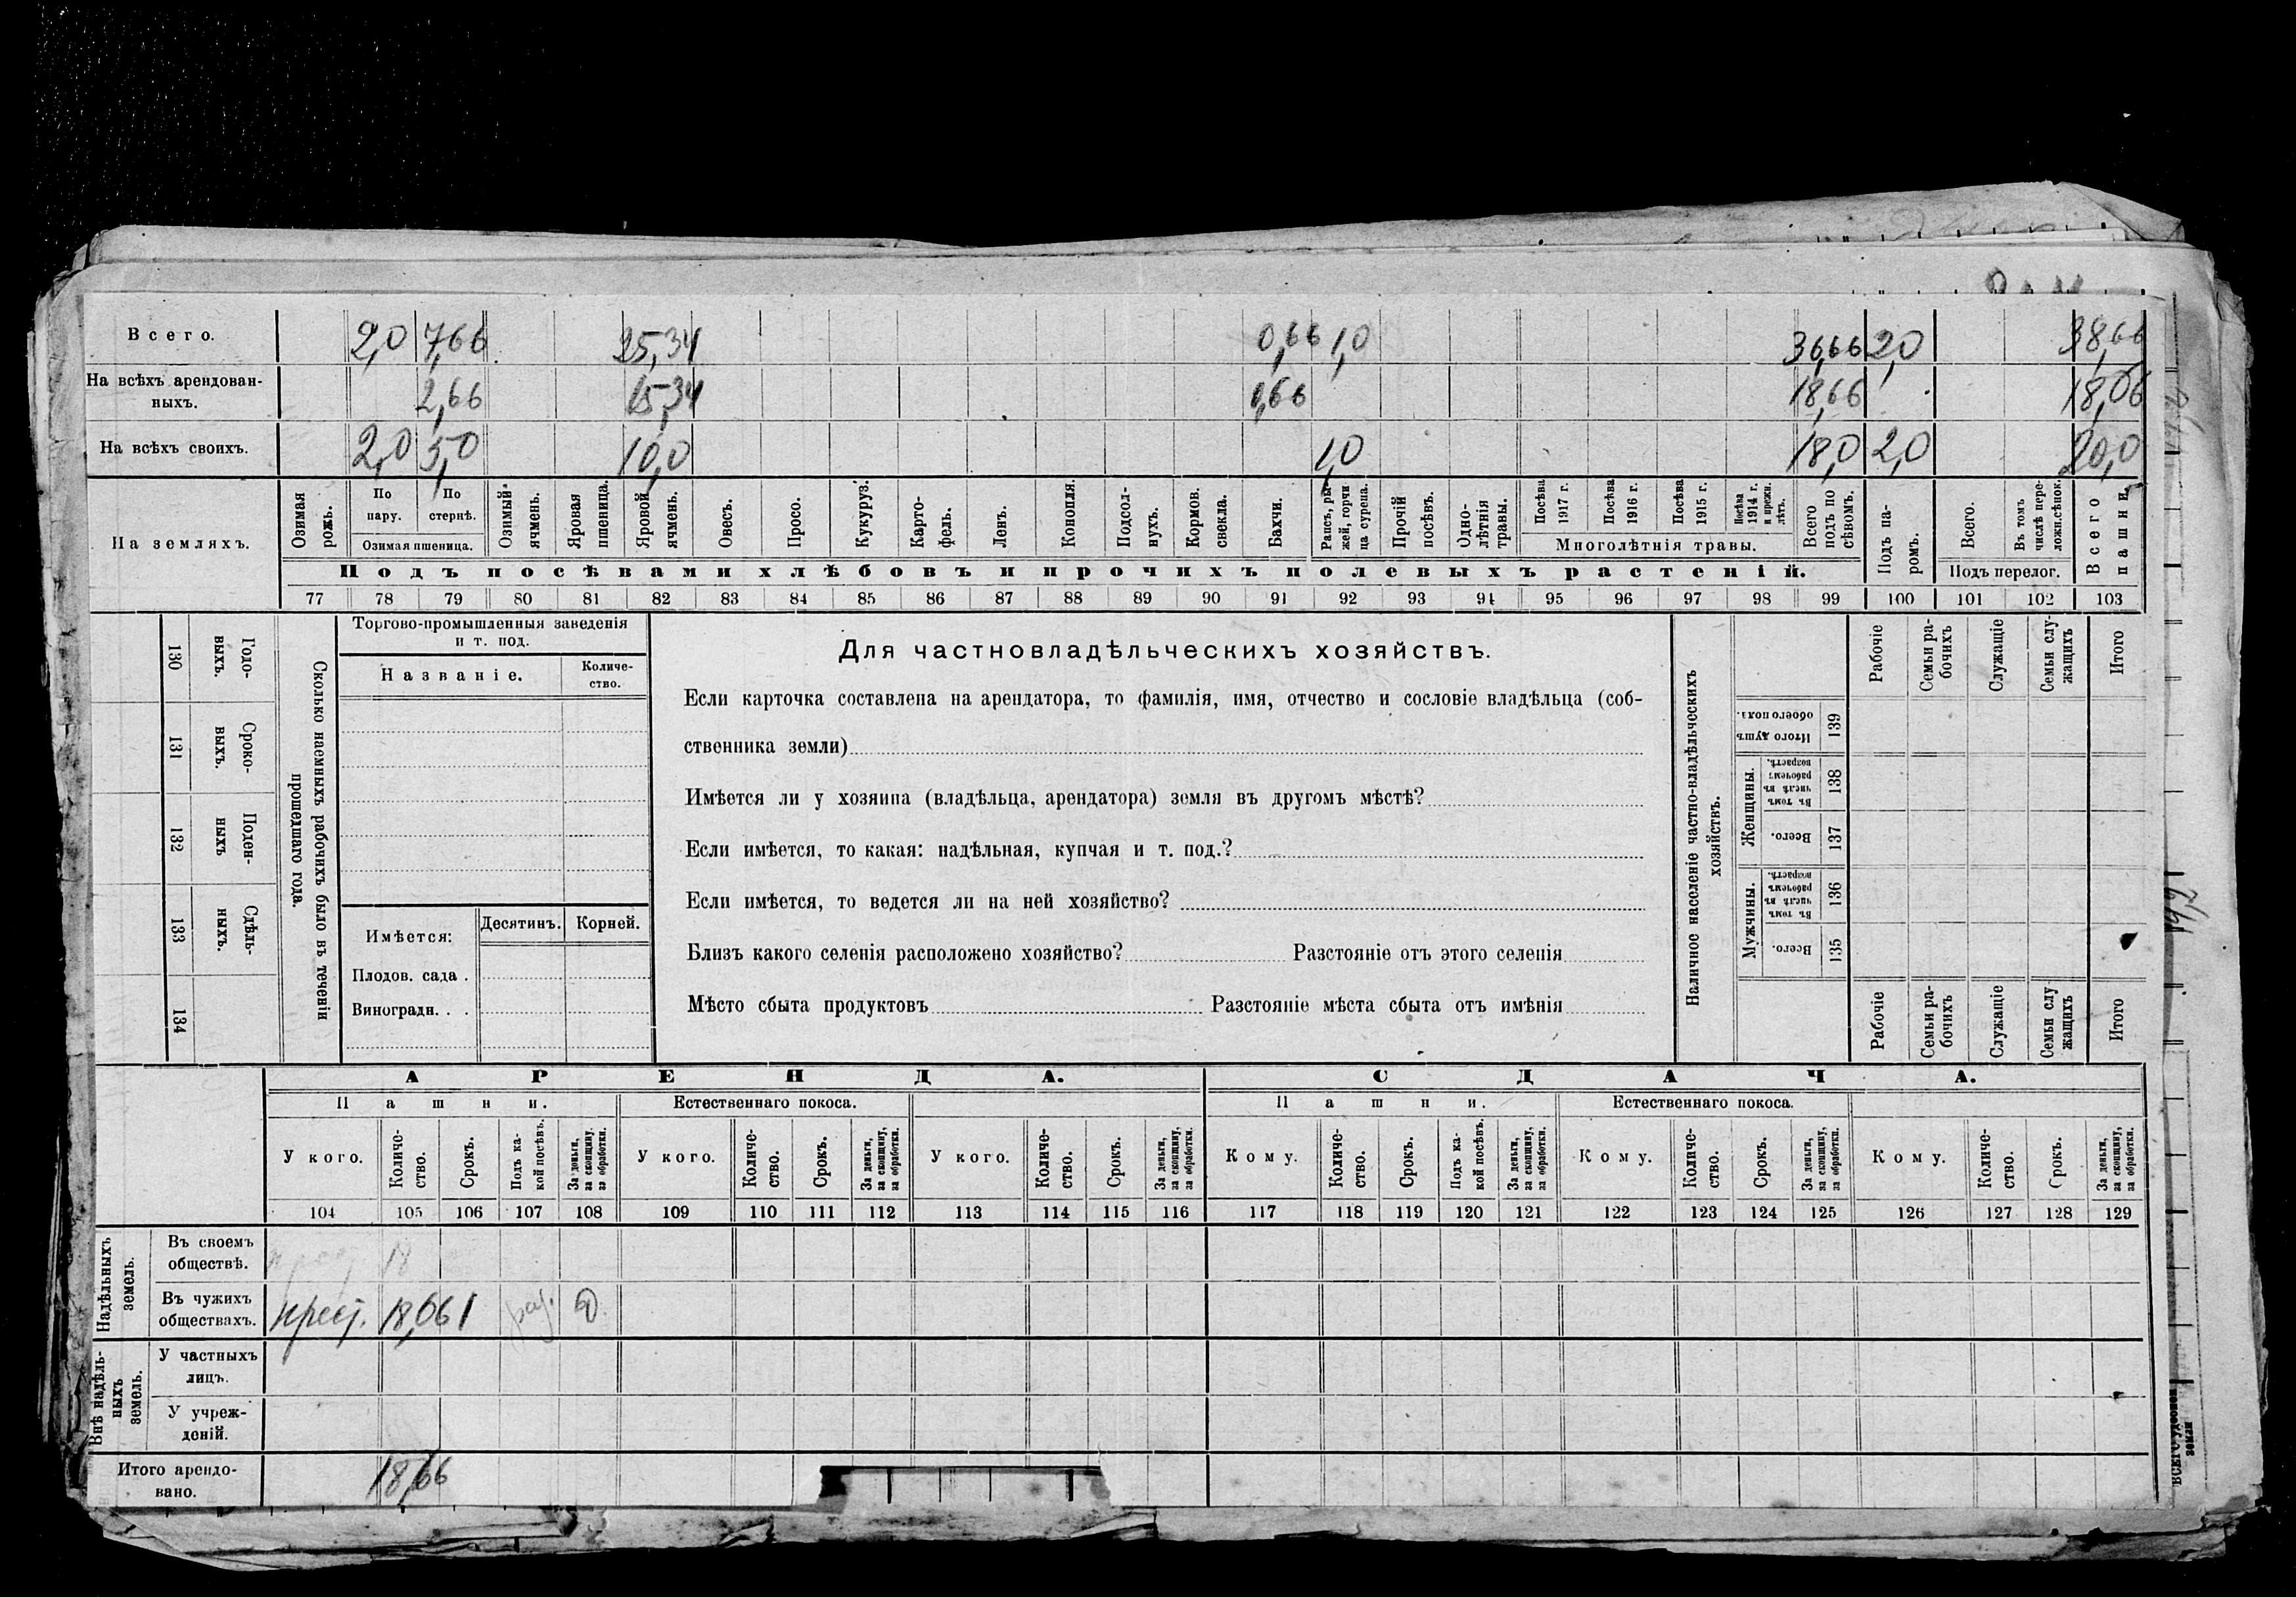 Всего. 2,0 7,66 25,34 0,66 1,0 36,66 2,0 38,66
На всѣхъ арендован-
ныхъ. 2,66 15,34 0,66 18,66 18,66
На всѣхъ своихъ. 2,0 5,0 10,0 1,0 18,0 2,0 20,0
На земляхъ.
Озимая рожь.
По пару.
По стернѣ.
Озимая пшеница.
Озимый ячмень.
Яровая пшеница.
Яровой ячмень.
Овесъ.
Просо.
Кукуруз.
Карто-фель.
Ленъ.
Конопля.
Подсол-нухъ.
Кормов. свекла.
Бахчи.
Рапсъ, ры-жей, горчи ца сурепа.
Прочій посѣвъ.
Одно-лѣтнія травы.
Посѣва 1917 г.
Посѣва 1916 г.
Посѣва 1915 г.
Посѣва 1914 г. и прежн. лѣтъ.
Многолѣтнія травы.
Всего подъ по сѣвомъ.
Подъ па-ромъ.
Всего.
Въ томъ числѣ пере-ложн.сѣнок.
Подъ перелог.
Всего пашни.
Подъ посѣвами хлѣбовъ и прочихъ полевыхъ растеній.
77 78 79 80 81 82 83 84 85 86 87 88 89 90 91 92 93 94 95 96 97 98 99 100 101 102 103
130 Годо-ныхъ.
131 Сроко-ныхъ.
132 Поден-ныхъ
133 Сдѣль-ныхъ.
134
Сколько наемныхъ рабочихъ было въ теченіи
прошедшаго года.
Торгово-промышленныя заведенія
и т. под.
Названіе.
Количе-ство.
Имѣется:
Десятинъ. Корней.
Плодов. сада .
Виноградн. . .
Для частновладѣльческихъ хозяйствъ.
Если карточка составлена на арендатора, то фамилія, имя, отчество и сословіе владѣльца (соб-
ственника земли)
Имѣется ли у хозяина (владѣльца, арендатора) земля въ другомъ мѣстѣ?
Если имѣется, то какая: надѣльная, купчая и т. под.?
Если имѣется, то ведется ли на ней хозяйство?
Близъ какого селенія расположено хозяйство? Разстояніе отъ этого селенія
Мѣсто сбыта продуктовъ Разстояніе мѣста сбыта отъ имѣнія
Наличное населеніе частно-владѣльческихъ
хозяйствъ.
Рабочіе
Семьи ра-бочихъ
Служащіе
Семьи слу-жащихъ
Итого
Итого душъ обоего пола. 139
Женщины.
Въ томъ числѣ въ рабочемъ возрастѣ. 138
Всего. 137
Мужчины.
Въ томъ числѣ въ рабочемъ возрастѣ. 136
Всего. 135
Рабочіе
Семьи ра-бочихъ
Служащіе
Семьи слу жащихъ
Итого
АРЕНДА. СДАЧА.
Пашни. Естественнаго покоса. Пашни. Естественнаго покоса.
У кого. Количе-ство. Срокъ. Подъ ка-кой посѣвъ. За деньги, за скопщину, за обработки.
У кого. Количе-ство. Срокъ. За деньги, за скопщину, за обработки.
У кого. Количе-ство. Срокъ. За деньги, за скопщину, за обработки.
Кому. Количе-ство. Срокъ. Подъ ка-кой посѣвъ. За деньги, за скопщину, за обработки.
Кому. Количе-ство. Срокъ. За деньги, за скопщину, за обработки.
Кому. Количе-ство. Срокъ. За деньги, за скопщину, за обработки.
104 105 106 107 108 109 110 111 112 113 114 115 116 117 118 119 120 121 122 123 124 125 126 127 128 129
Надѣльныхъ земель.
Въ своемъ
обществѣ. 18
Въ чужихъ
обществахъ. крест. 18,66 1
Внѣ надѣль-ныхъ земель.
У частныхъ
лицъ.
У учреж-
деній.
Итого арендо-
вано. 18,66